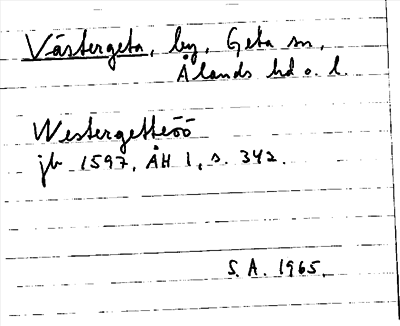 Västergeta, by, Geta sn,
Ålands hd o. l.
Westergetteöö
jb 1597, ÅH 1, s. 342.
S.A. 1965.